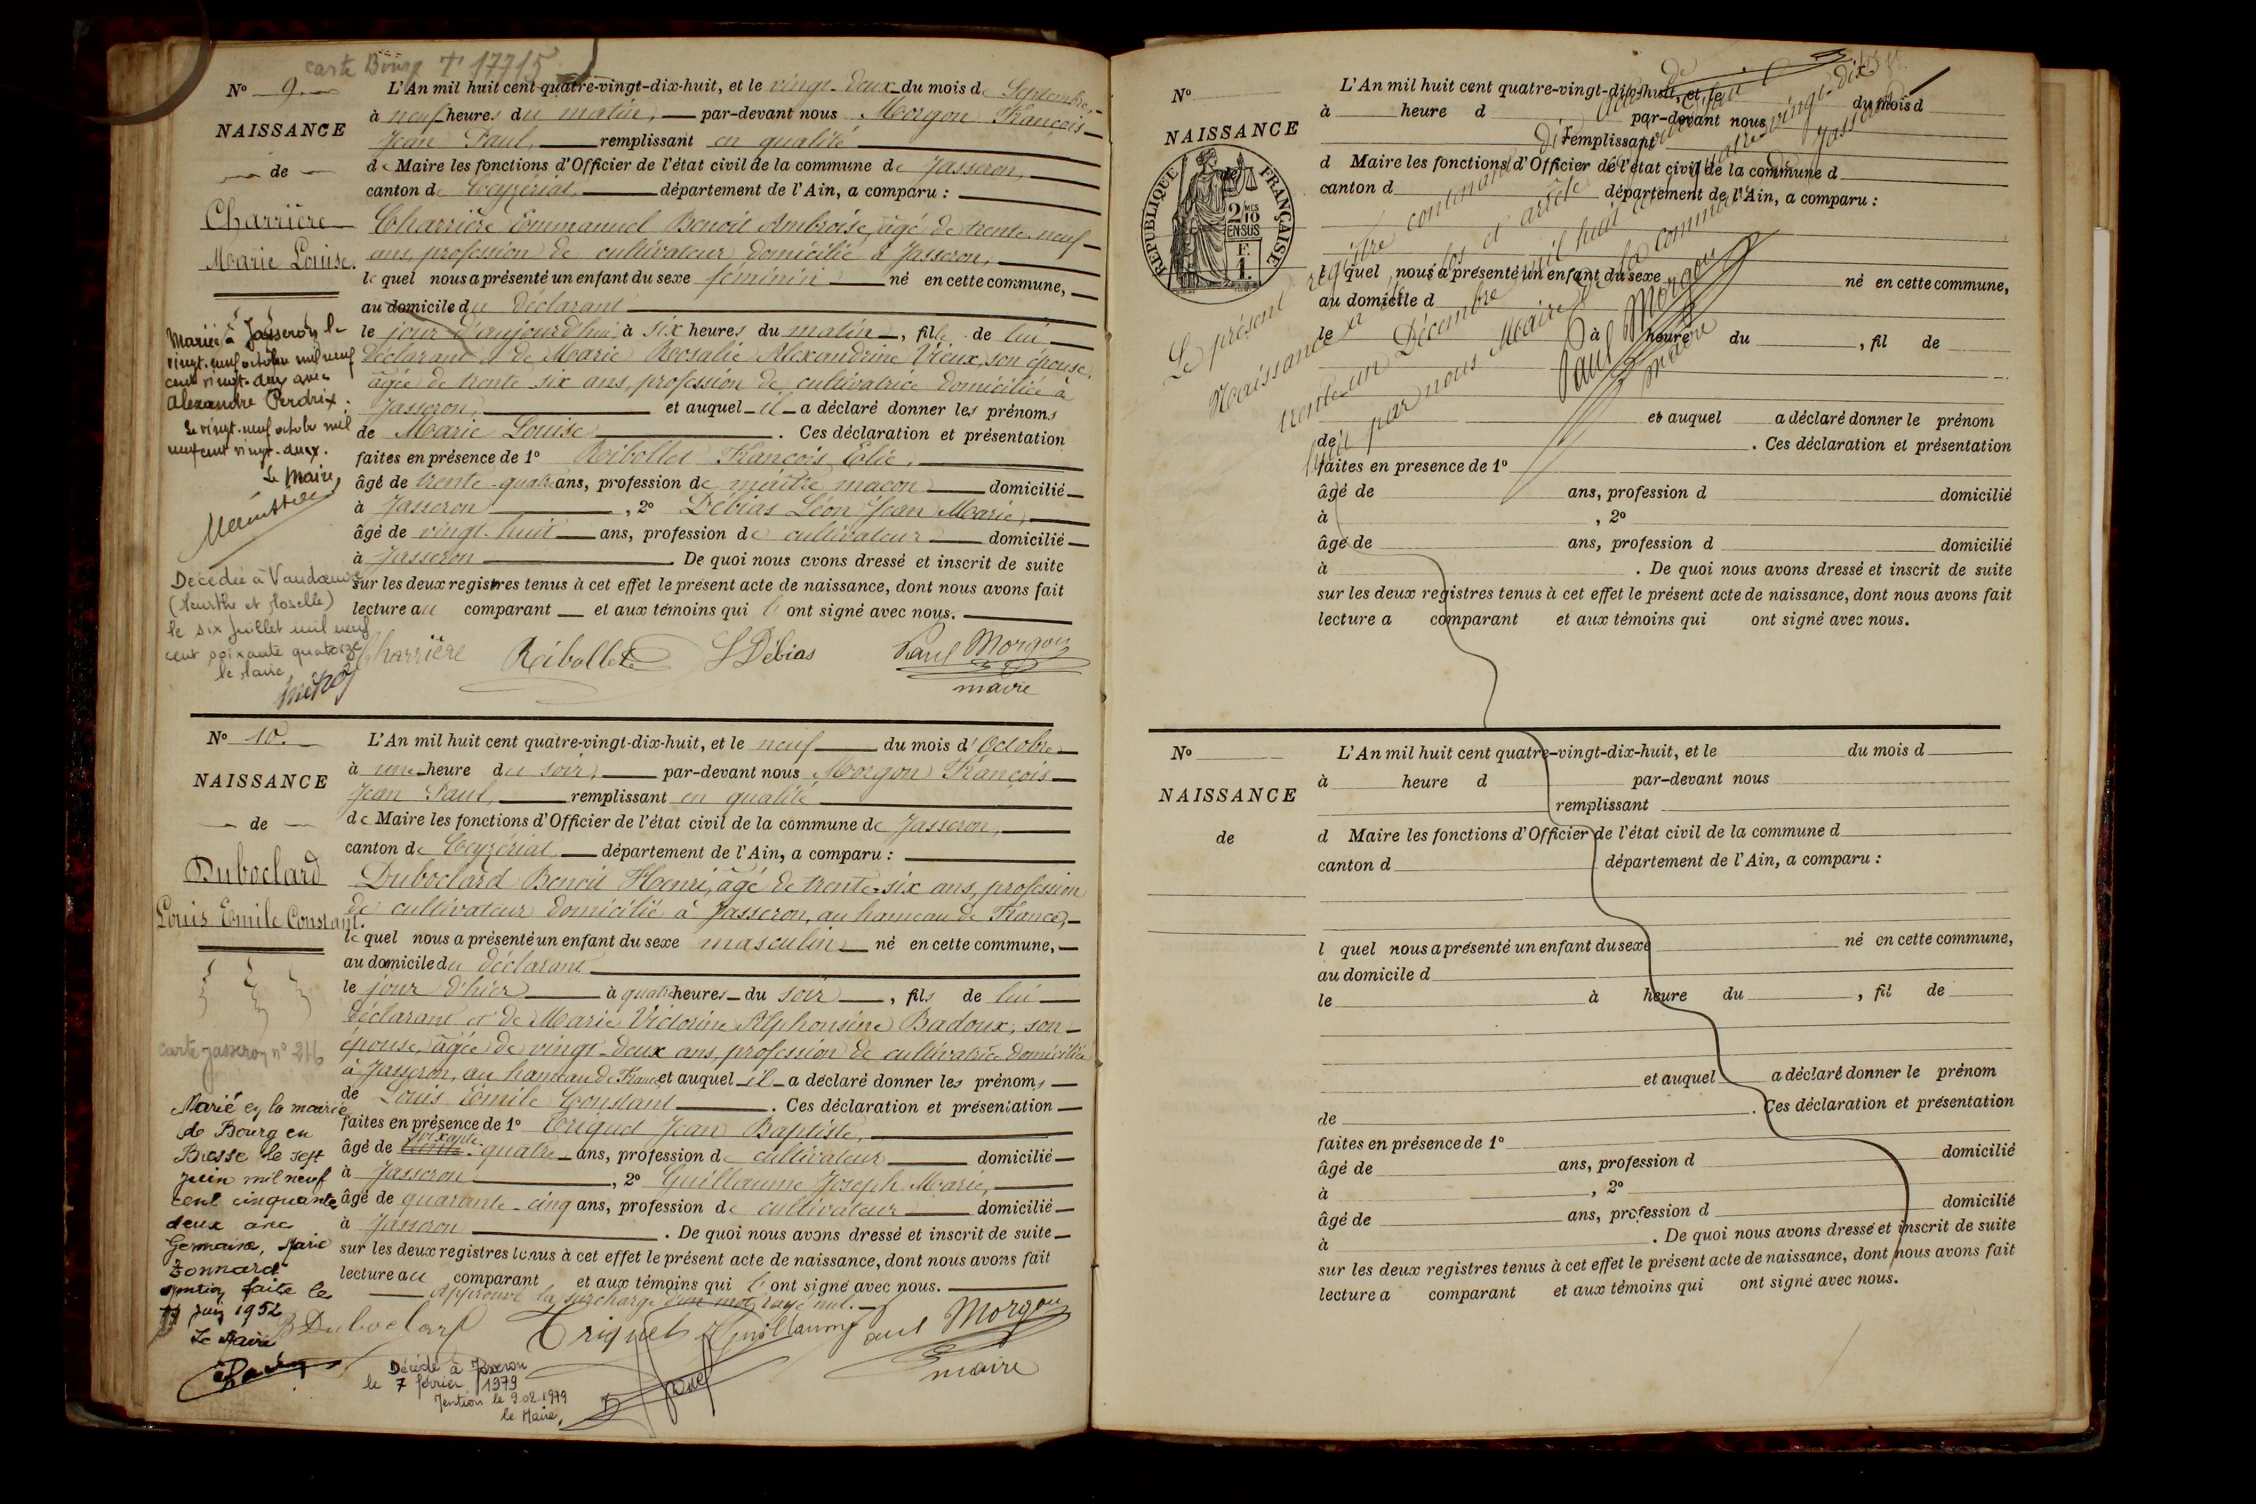 carte Bourg 17715
No 9.
NAISSANCE
de
Charrière
Marie Louise.
L'An mil huit cent quatre-vingt-dix-huit, et le vingt-deux du mois de Septembre
à neuf heures du matin, par-devant nous Morgon François
Jean Paul, remplissant en qualité
de Maire les fonctions d'Officier de l'état civil de la commune de Jasseron,
canton de Ceyzériat, département de l'Ain, a comparu :
Charrière Emmanuel Benoit Ambroise, âgé de trente-neuf
ans, profession de cultivateur domicilié à Jasseron,
lequel nous a présenté un enfant du sexe féminin né en cette commune,
au domicile du déclarant
le jour d'aujourd'hui à six heures du matin, fille de lui
déclarant et de Marie Rosalie Alexandrine Vieux, son épouse,
âgée de trente-six ans, profession de cultivatrice domiciliée à
Jasseron, et auquel il a déclaré donner les prénoms
de Marie Louise. Ces déclaration et présentation
faites en présence de 1o Ribollet François Elie,
âgé de trente-quatre ans, profession de maître maçon domicilié
à Jasseron, 2o Débias Léon Jean Marie,
âgé de vingt-huit ans, profession de cultivateur domicilié
à Jasseron. De quoi nous avons dressé et inscrit de suite
sur les deux registres tenus à cet effet le présent acte de naissance, dont nous avons fait
lecture au comparant et aux témoins qui l'ont signé avec nous.
Charrière Ribollet L Débias Paul Morgon
maire
Mariée à Jasseron le
vingt-neuf octobre mil neuf
cent vingt-deux avec
Alexandre Perdrix.
Le vingt-neuf octobre mil
neuf cent vingt-deux.
Le Maire,
Décédée à Vandœuvre
(Meurthe et Moselle)
le six Juillet mil neuf
cent soixante quatorze
le Maire,
No 10.
NAISSANCE
de
Duboclard
Louis Emile Constant.
L'An mil huit cent quatre-vingt-dix-huit, et le neuf du mois d'Octobre
à une heure du soir, par-devant nous Morgon François
Jean Paul, remplissant en qualité
de Maire les fonctions d'Officier de l'état civil de la commune de Jasseron,
canton de Ceyzériat, département de l'Ain, a comparu :
Duboclard Benoit Henri, âgé de trente-six ans, profession
de cultivateur domicilié à Jasseron, au hameau de France,
lequel nous a présenté un enfant du sexe masculin né en cette commune,
au domicile du déclarant
le jour d'hier à quatre heures du soir, fils de lui
déclarant et de Marie Victorine Alphonsine Badoux, son
épouse, âgée de vingt-deux ans, profession de cultivatrice domiciliée
à Jasseron, au hameau de France et auquel il a déclaré donner les prénoms
de Louis Emile Constant. Ces déclaration et présentation
faites en présence de 1o Triquet Jean Baptiste,
soixante
âgé de quatre ans, profession de cultivateur domicilié
à Jasseron, 2o Guillaume Joseph Marie,
âgé de quarante-cinq ans, profession de cultivateur domicilié
à Jasseron. De quoi nous avons dressé et inscrit de suite
sur les deux registres tenus à cet effet le présent acte de naissance, dont nous avons fait
lecture au comparant et aux témoins qui l'ont signé avec nous.
Approuvé la surcharge d'un mot rayé nul.
B Duboclard Triquet Guillaume Paul Morgon
maire
carte Jasseron no 246
Marié en la mairie
de Bourg en
Bresse le sept
juin mil neuf
cent cinquante
deux avec
Germaine, Marie
Bonnard
mention faite le
11 juin 1952
Le Maire
Décédé à Jasseron
le 7 février 1979
Mention le 9.02.1979
le Maire,
No
NAISSANCE
RÉPUBLIQUE FRANÇAISE
2/10 MES
EN SUS
F.
1.
L'An mil huit cent quatre-vingt-dix-huit, et le du mois d
à heure d par-devant nous
remplissant
d Maire les fonctions d'Officier de l'état civil de la commune d
canton d département de l'Ain, a comparu :
l quel nous a présenté un enfant du sexe né en cette commune,
au domicile d
le à heure du , fil de
et auquel a déclaré donner le prénom
de . Ces déclaration et présentation
faites en présence de 1o
âgé de ans, profession d domicilié
à , 2o
âgé de ans, profession d domicilié
à . De quoi nous avons dressé et inscrit de suite
sur les deux registres tenus à cet effet le présent acte de naissance, dont nous avons fait
lecture a comparant et aux témoins qui ont signé avec nous.
Le présent registre contenant dix
Naissances a été clos et arrêté
trente-un Décembre mil huit cent quatre-vingt-dix
huit par nous Maire de la commune de Jasseron
Paul Morgon
maire
No
NAISSANCE
de
L'An mil huit cent quatre-vingt-dix-huit, et le du mois d
à heure d par-devant nous
remplissant
d Maire les fonctions d'Officier de l'état civil de la commune d
canton d département de l'Ain, a comparu :
l quel nous a présenté un enfant du sexe né en cette commune,
au domicile d
le à heure du , fil de
et auquel a déclaré donner le prénom
de . Ces déclaration et présentation
faites en présence de 1o
âgé de ans, profession d domicilié
à , 2o
âgé de ans, profession d domicilié
à . De quoi nous avons dressé et inscrit de suite
sur les deux registres tenus à cet effet le présent acte de naissance, dont nous avons fait
lecture a comparant et aux témoins qui ont signé avec nous.